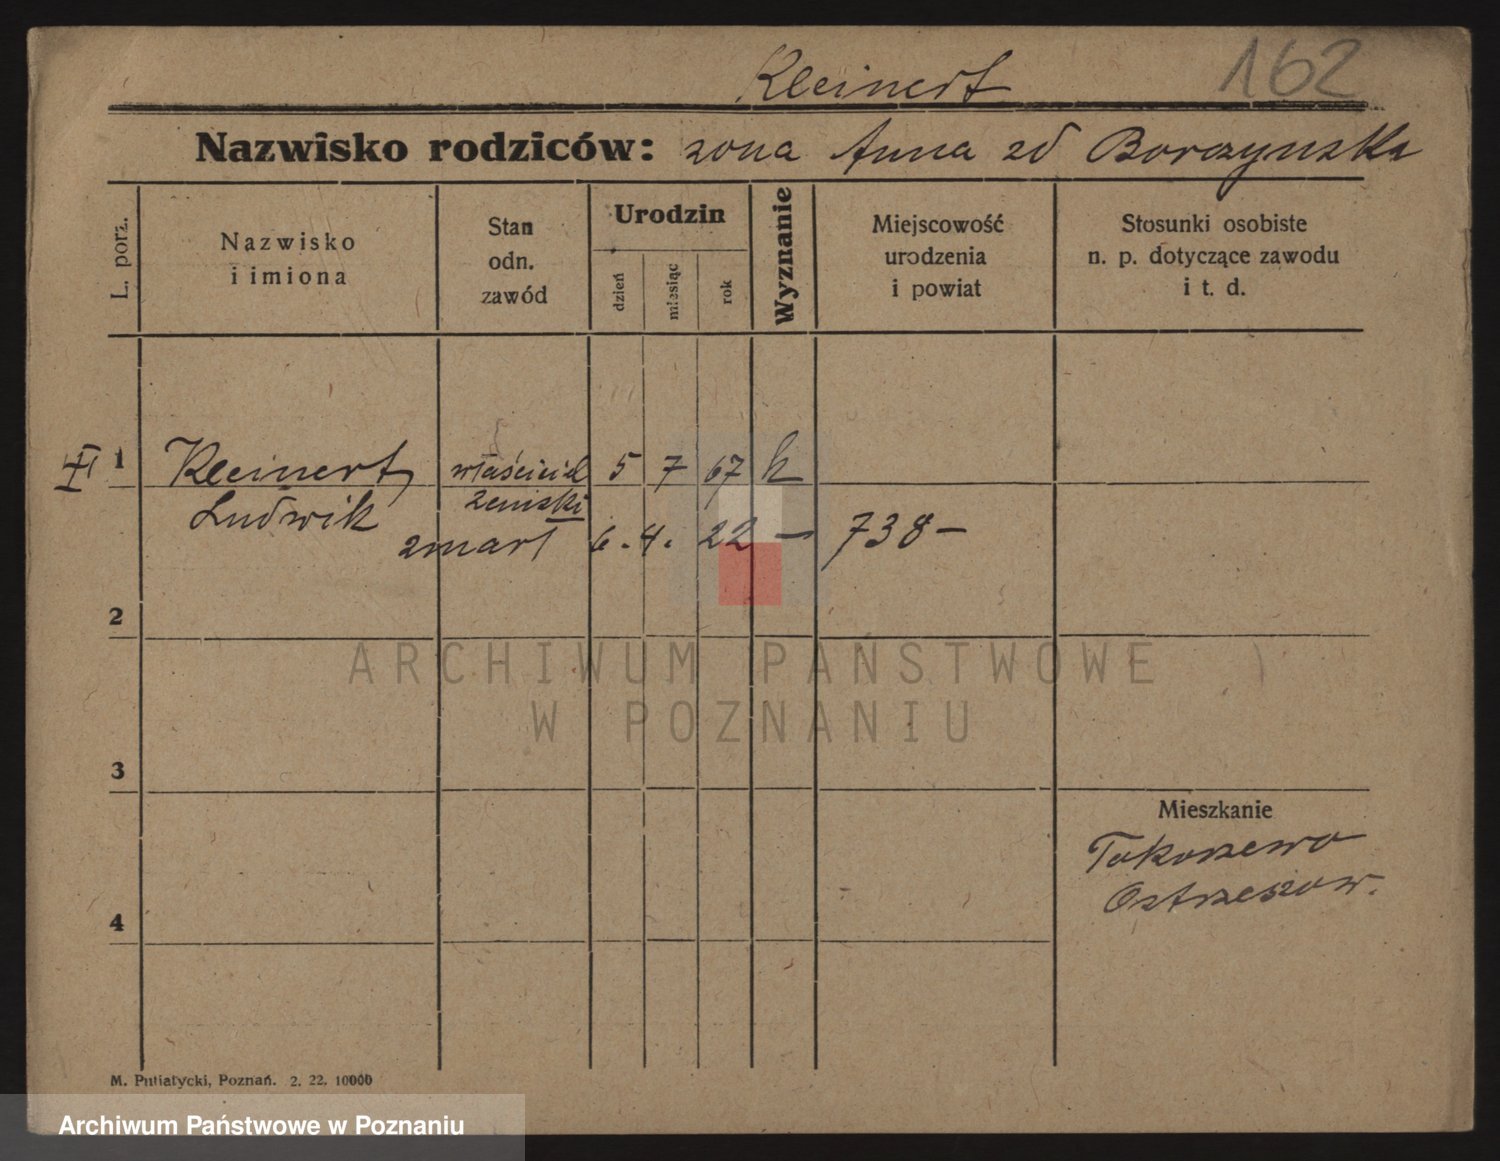 162
Kleinert
Nazwisko rodziców: zona Anna zd Borczynska
L. porz.
Nazwisko
i imiona
Stan
odn.
zawód
Urodzin
dzień
miesiąc
rok
Wyznanie
Miejscowość
urodzenia
i powiat
Stosunki osobiste
n. p. dotyczące zawodu
i t. d.
1 Kleinert właściciel 5 7 67 k
Ludwik ziemski
zmarł 6. 4. 22 — 738 —
2
3
Mieszkanie
4
Ostrzeszow.
ARCHIWUM PAŃSTWOWE
W POZNANIU
M. Putiatycki, Poznań. 2. 22. 10000
Archiwum Państwowe w Poznaniu